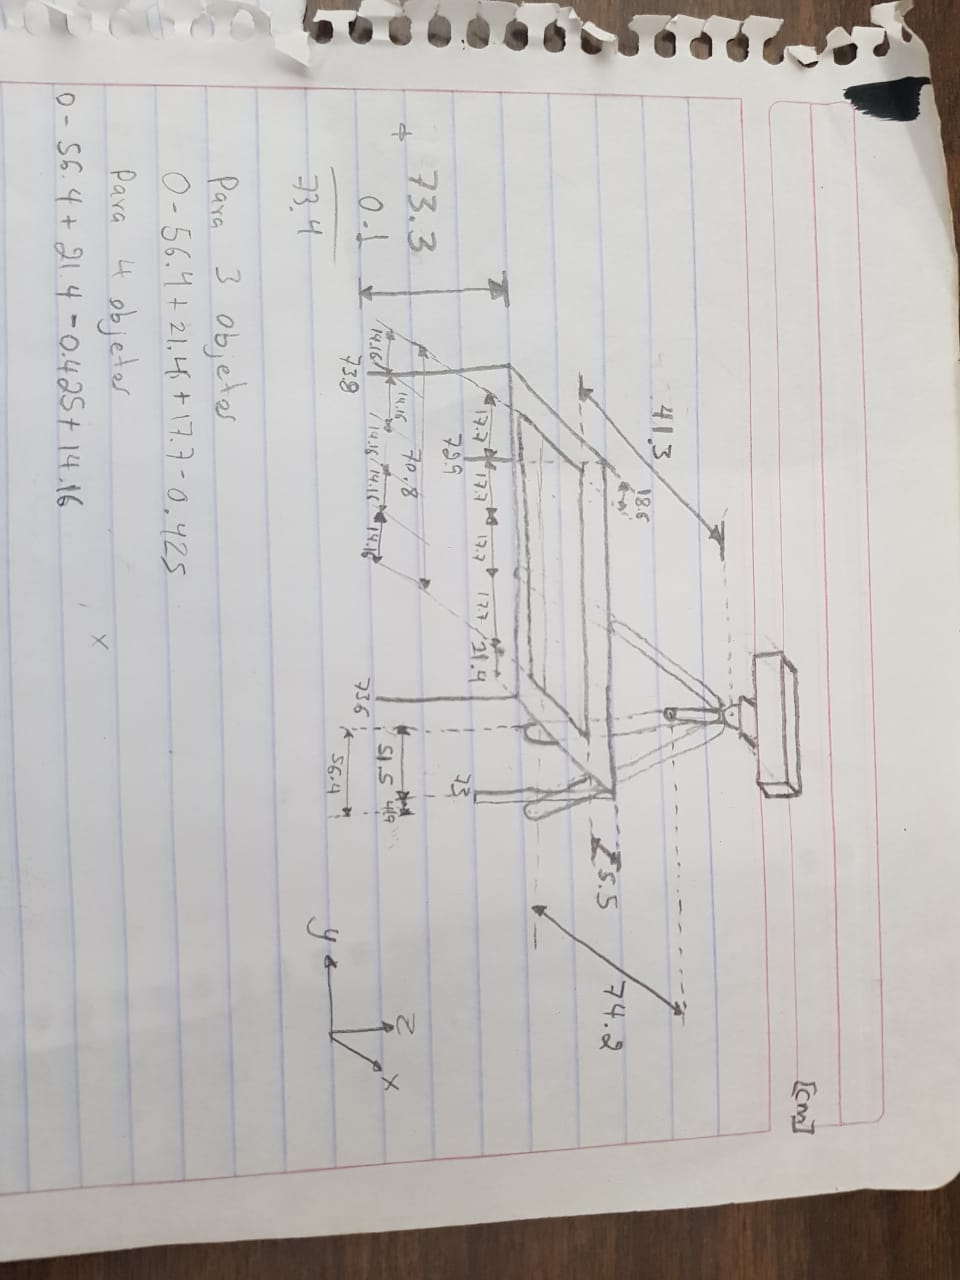 [cm]
41.3
18.6
5.5
74.2
17.7 17.7 17.7 17.7 21.4
72.9
73
+ 73.3
0.1
73.4
70.8
14.16 14.16 14.16 14.16 14.16
73.8
73.6
51.5 4.9
56.4
z
x
y
Para 3 objetos
0 - 56.4 + 21.4 + 17.7 - 0.425
Para 4 objetos
x
0 - 56.4 + 21.4 - 0.425 + 14.16